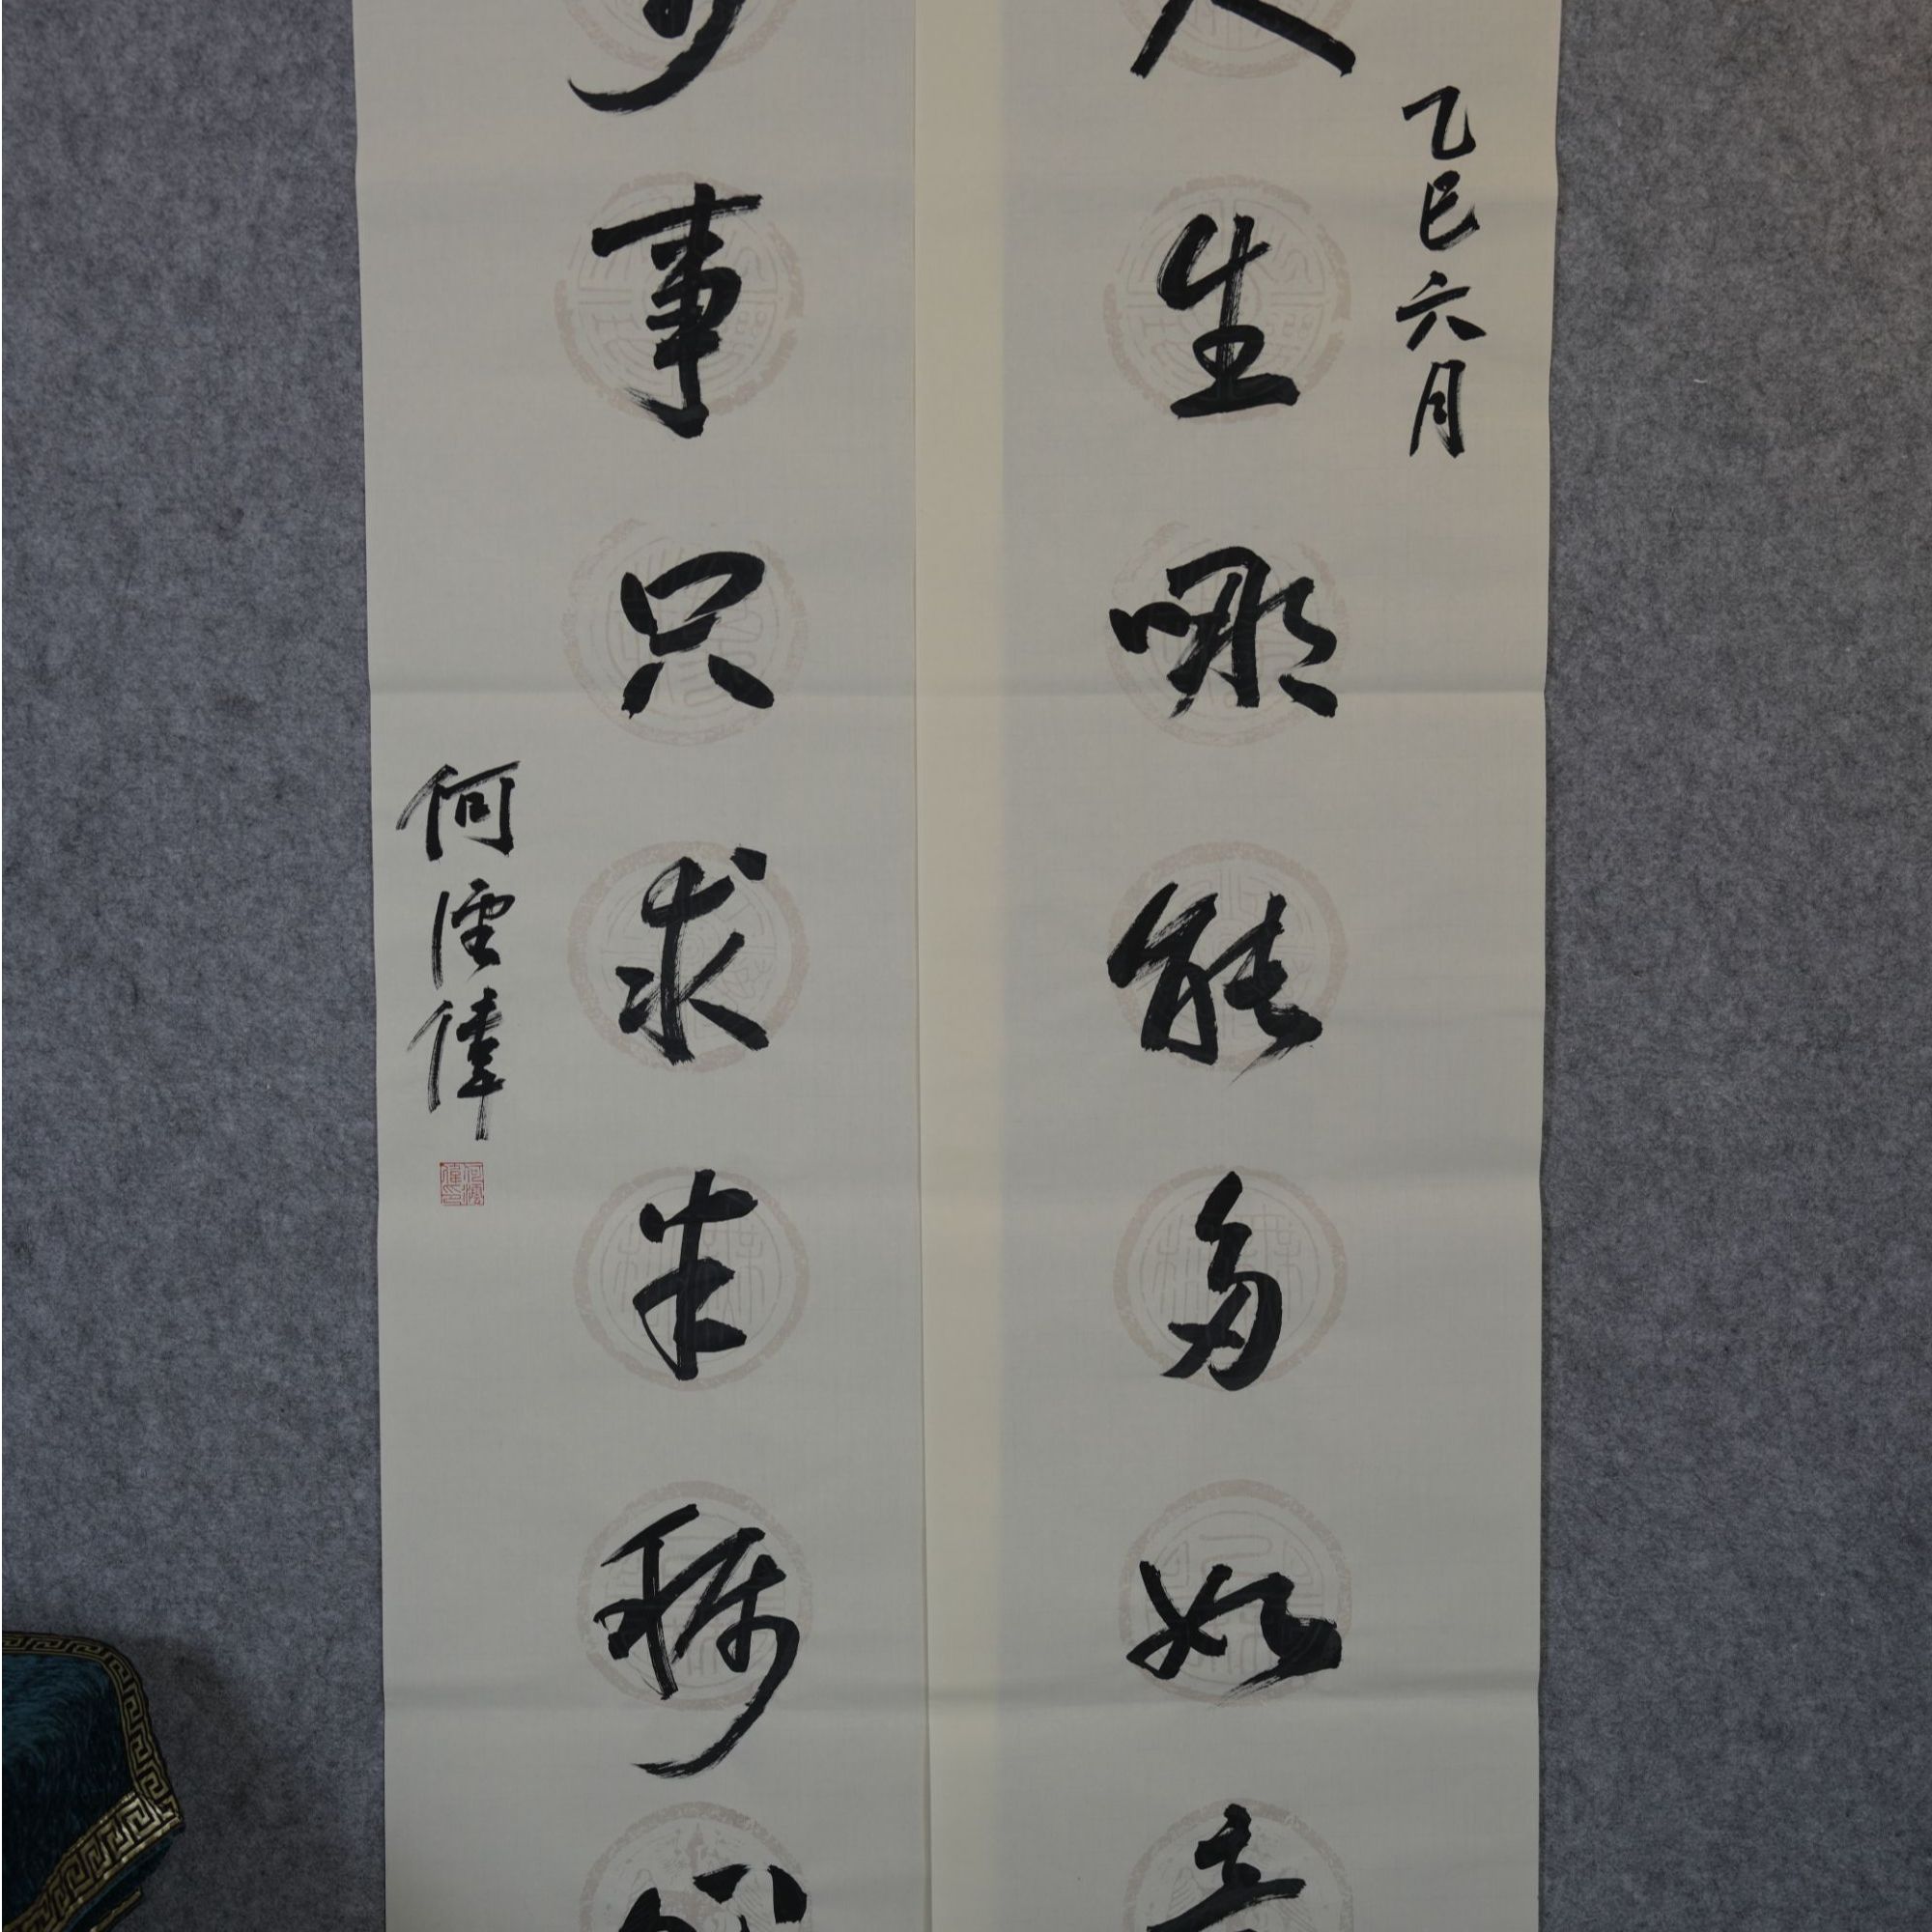 乙巳六月
人生哪能多如意
萬事只求半称心
何澐偉